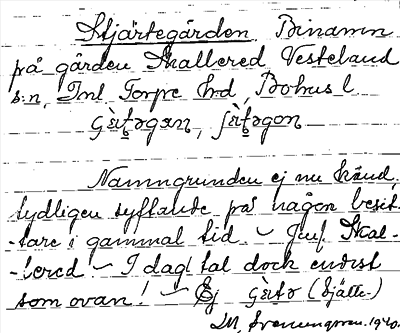 Stjärtegården Binamn
på gården Skallered Vesteland
s:n, Inl Torpe hd, Bohusl
Namngrunden ej nu känd,
tydligen syftande på någon besit-
-tare i gammal tid. – Jmf. Skal-
-lered – I dagl tal dock endast
som ovan! – Ej (Själle-)
1940.